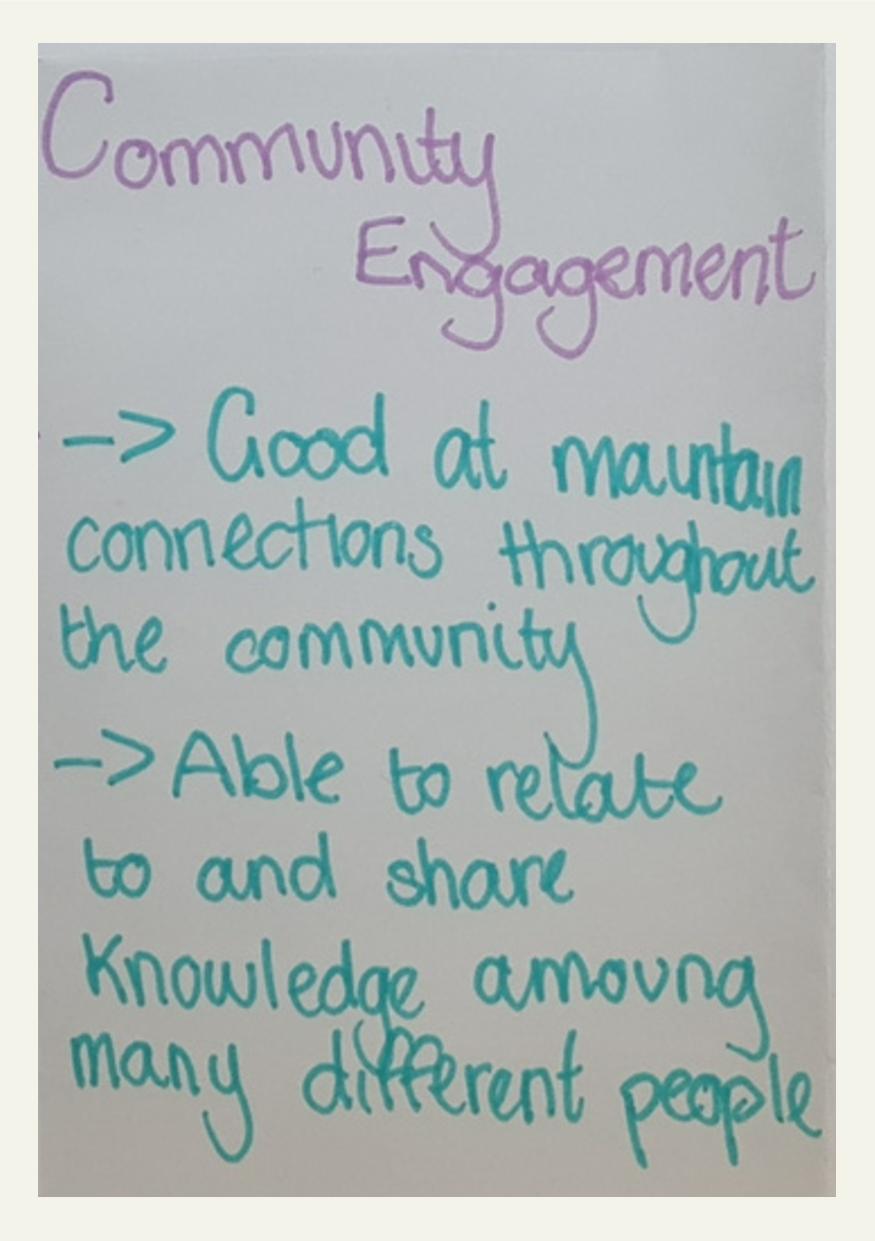 Community
Engagement
-> Good at maintain
connections throughout
the community
-> Able to relate
to and share
Knowledge amoung
many different people